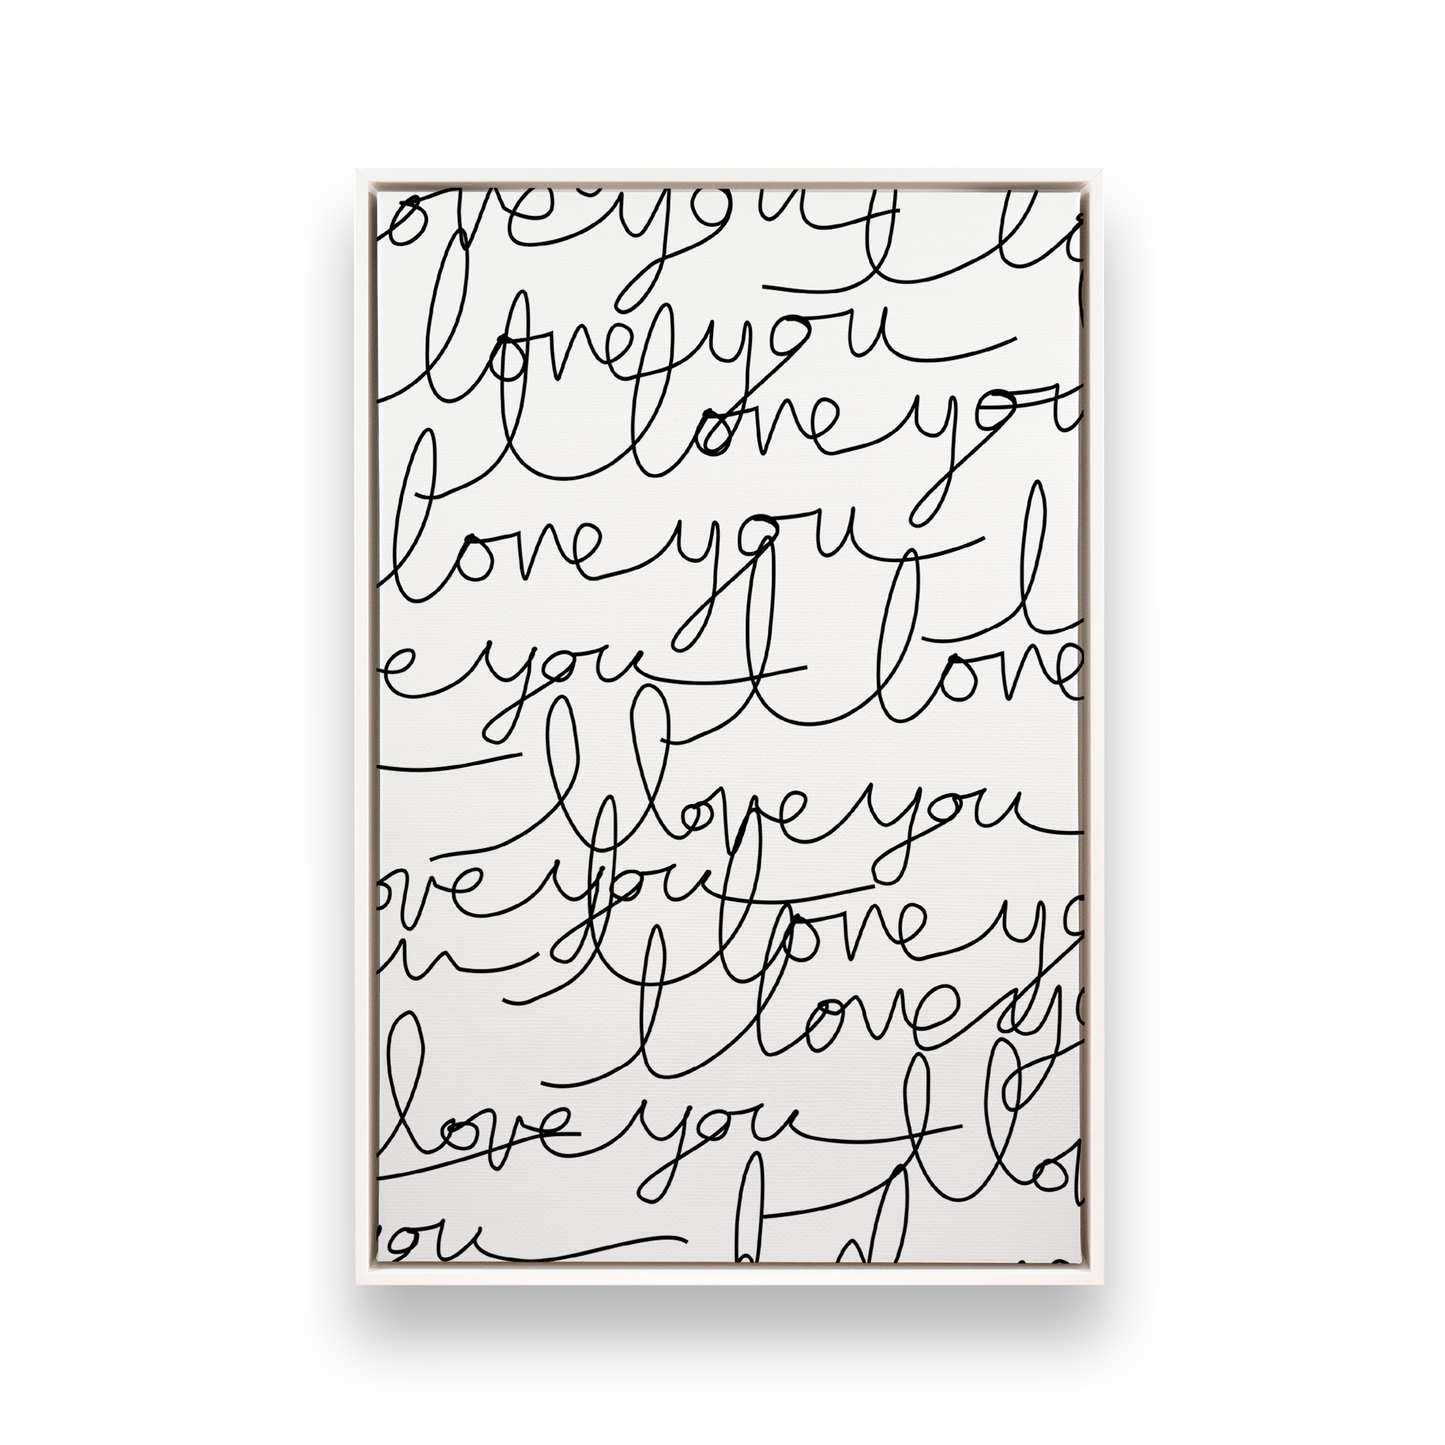 ove you I lo
love you
I love you
love you I
e you I love
I love you
ove you I love yo
u I love yo
love you I lo
you I